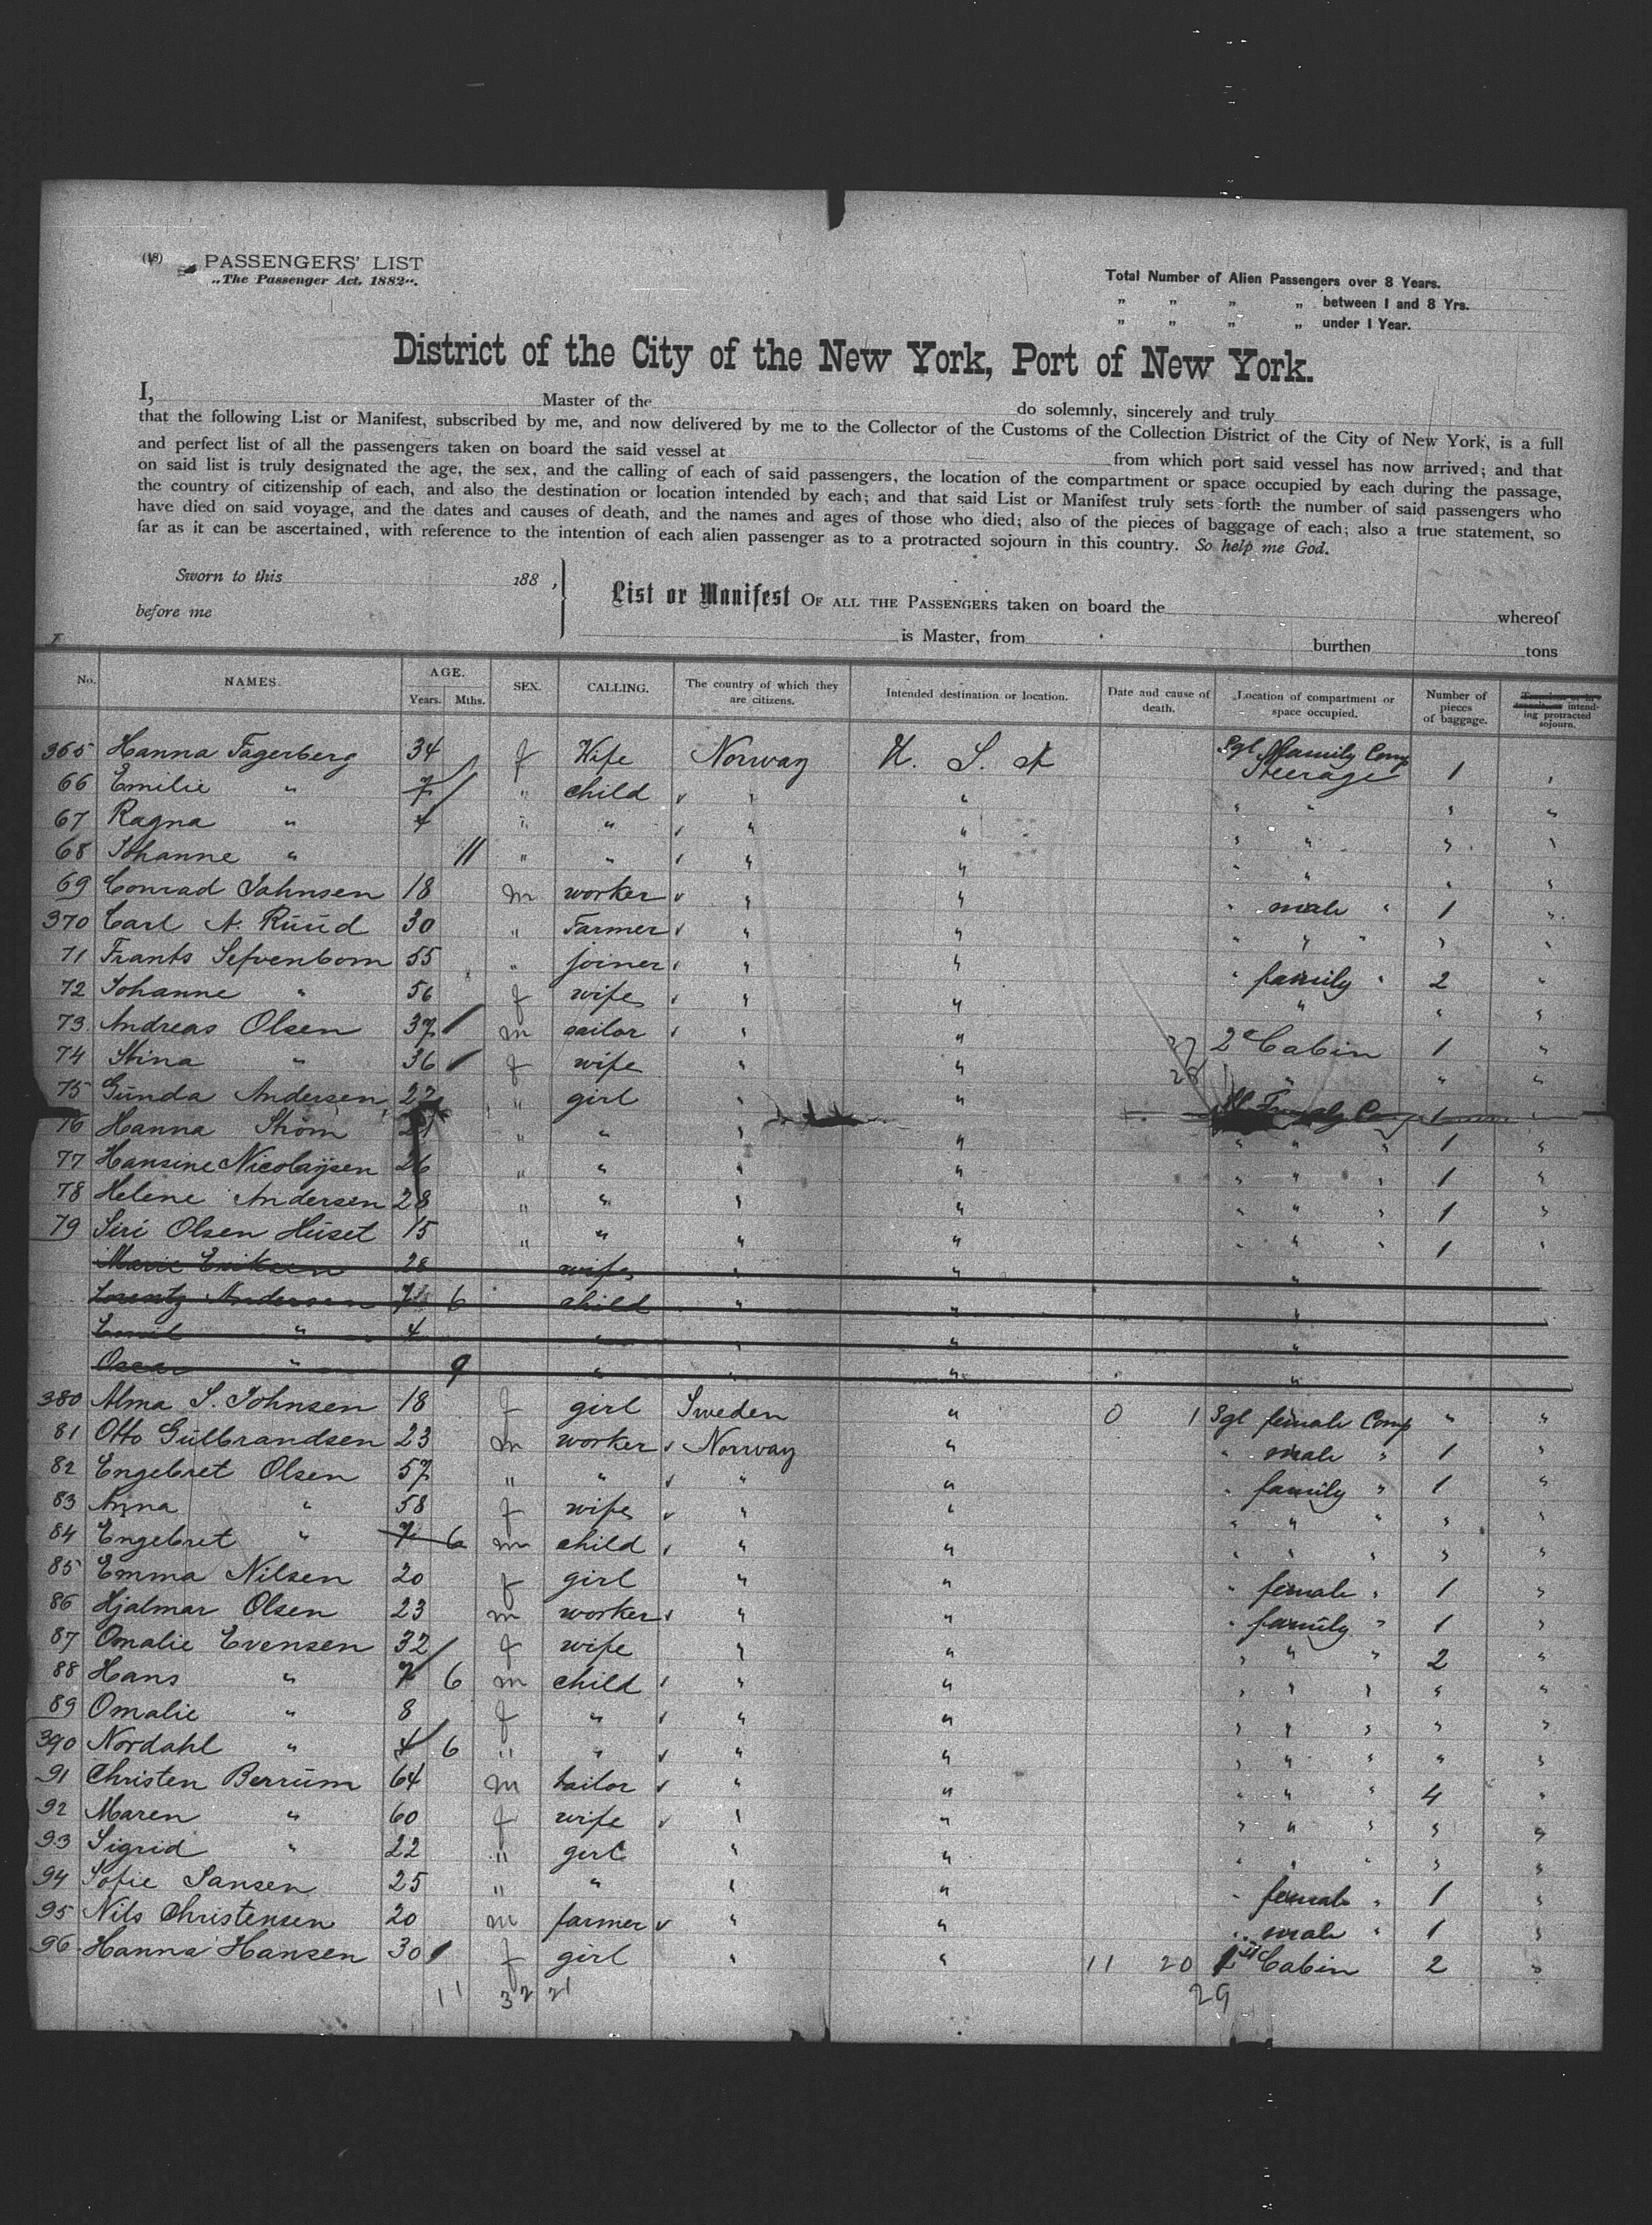 (18) PASSENGERS' LIST
„The Passenger Act, 1882".
Total Number of Alien Passengers over 8 Years.
„ „ „ „ between 1 and 8 Yrs.
„ „ „ „ under 1 Year.
District of the City of the New York, Port of New York.
I, Master of the do solemnly, sincerely and truly
that the following List or Manifest, subscribed by me, and now delivered by me to the Collector of the Customs of the Collection District of the City of New York, is a full
and perfect list of all the passengers taken on board the said vessel at from which port said vessel has now arrived; and that
on said list is truly designated the age, the sex, and the calling of each of said passengers, the location of the compartment or space occupied by each during the passage,
the country of citizenship of each, and also the destination or location intended by each; and that said List or Manifest truly sets forth the number of said passengers who
have died on said voyage, and the dates and causes of death, and the names and ages of those who died; also of the pieces of baggage of each; also a true statement, so
far as it can be ascertained, with reference to the intention of each alien passenger as to a protracted sojourn in this country. So help me God.
Sworn to this 188 ,
before me
List or Manifest OF ALL THE PASSENGERS taken on board the whereof
is Master, from burthen tons
No. NAMES. AGE. Years. Mths. SEX. CALLING. The country of which they are citizens. Intended destination or location. Date and cause of death. Location of compartment or space occupied. Number of pieces of baggage. intending protracted sojourn.
365 Hanna Fagerberg 34 f Wife Norway U. S. A Sgl family Comp Steerage 1 "
66 Emilie " 7 " child " " " " " "
67 Ragna " 4 " " " " " " " "
68 Johanne " 11 " " " " " " "
69 Conrad Johnsen 18 m worker " " " male " 1 "
370 Carl A. Ruud 30 " Farmer " " " " " " "
71 Frants Sefvenbom 55 " joiner " " " family " 2 "
72 Johanne " 56 f wife " " " " "
73 Andreas Olsen 37 m sailor " " 27 2d Cabin 1 "
74 Stina " 36 f wife " " 28 " " "
75 Gunda Andersen 27 " girl " " Sgl Family Comp 1 "
76 Hanna Strom 21 " " " " " " " 1 "
77 Hansine Nicolaysen 26 " " " " " " " 1 "
78 Helene Andersen 28 " " " " " " " 1 "
79 Siri Olsen Huset 15 " " " " " " " 1 "
Marie Eriksen 28 wife " " "
Lorentz Andersen 7 6 child " " "
Emil " 4 " " " "
Oscar " 9 " " " "
380 Alma S. Johnsen 18 f girl Sweden " 0 1 Sgl female Comp " "
81 Otto Gulbrandsen 23 m worker Norway " " male " 1 "
82 Engebret Olsen 57 " " " " " family " 1 "
83 Anna " 58 f wife " " " " " " "
84 Engebret " 7 6 m child " " " " " " "
85 Emma Nilsen 20 f girl " " " female " 1 "
86 Hjalmar Olsen 23 m worker " " " family " 1 "
87 Omalie Evensen 32 f wife " " " " " 2 "
88 Hans " 7 6 m child " " " " " " "
89 Omalie " 8 f " " " " " " " "
390 Nordahl " 4 6 " " " " " " " " "
91 Christen Berrum 64 m tailor " " " " " 4 "
92 Maren " 60 f wife " " " " " " "
93 Sigrid " 22 " girl " " " " " " "
94 Sofie Jansen 25 " " " " " female " 1 "
95 Nils Christensen 20 m farmer " " " male " 1 "
96 Hanna Hansen 30 f girl " " 11 20 Cabin 2 "
11 32 21 29